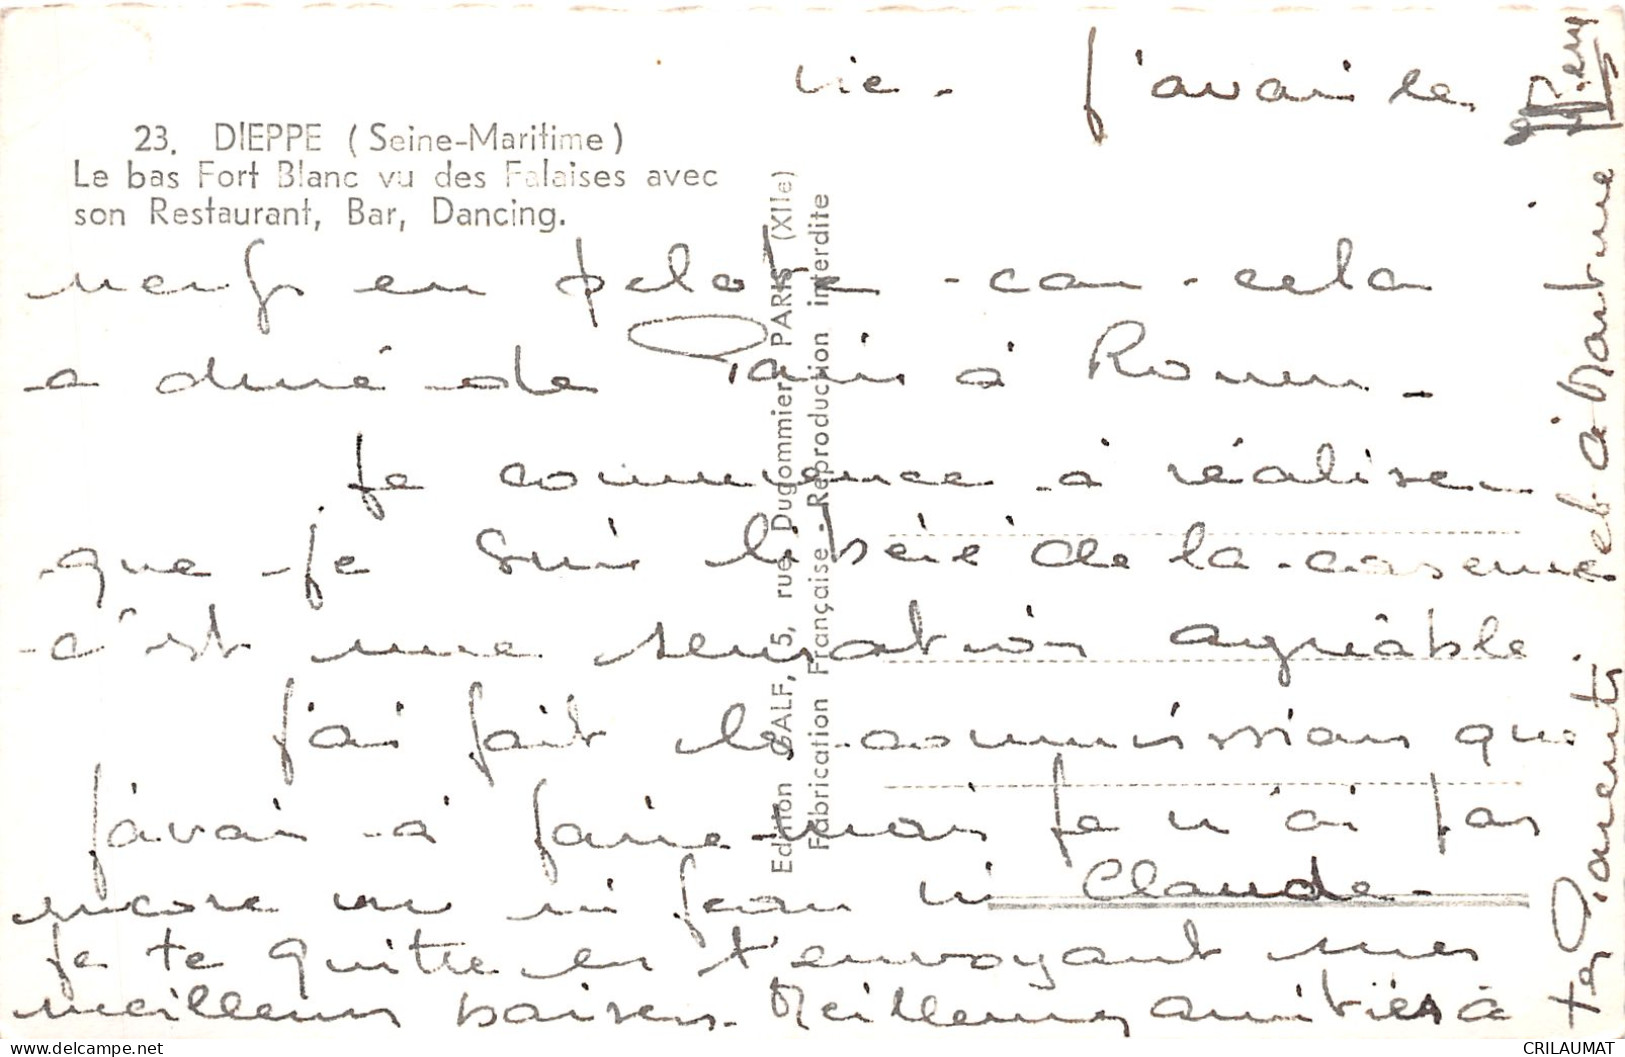 vie - j'avais les
23. DIEPPE (Seine-Maritime)
Le bas Fort Blanc vu des Falaises avec
son Restaurant, Bar, Dancing.
nerfs en pelote - car - cela
a duré de Paris à Rouen -
Je commence à réaliser
que je suis libéré de la caserne
c'est une sensation agréable.
J'ai fait les commissions que
j'avais à faire - mais je n'ai pas
encore vu ni Jean ni Claude -
Je te quitte en t'envoyant mes
meilleurs baisers - Meilleures amitiés à
tes Parents et à Martine
Rémy
Edition GALF, 15, rue Dugommier PARIS (XIIe)
Fabrication Française - Reproduction interdite
CRILAUMAT